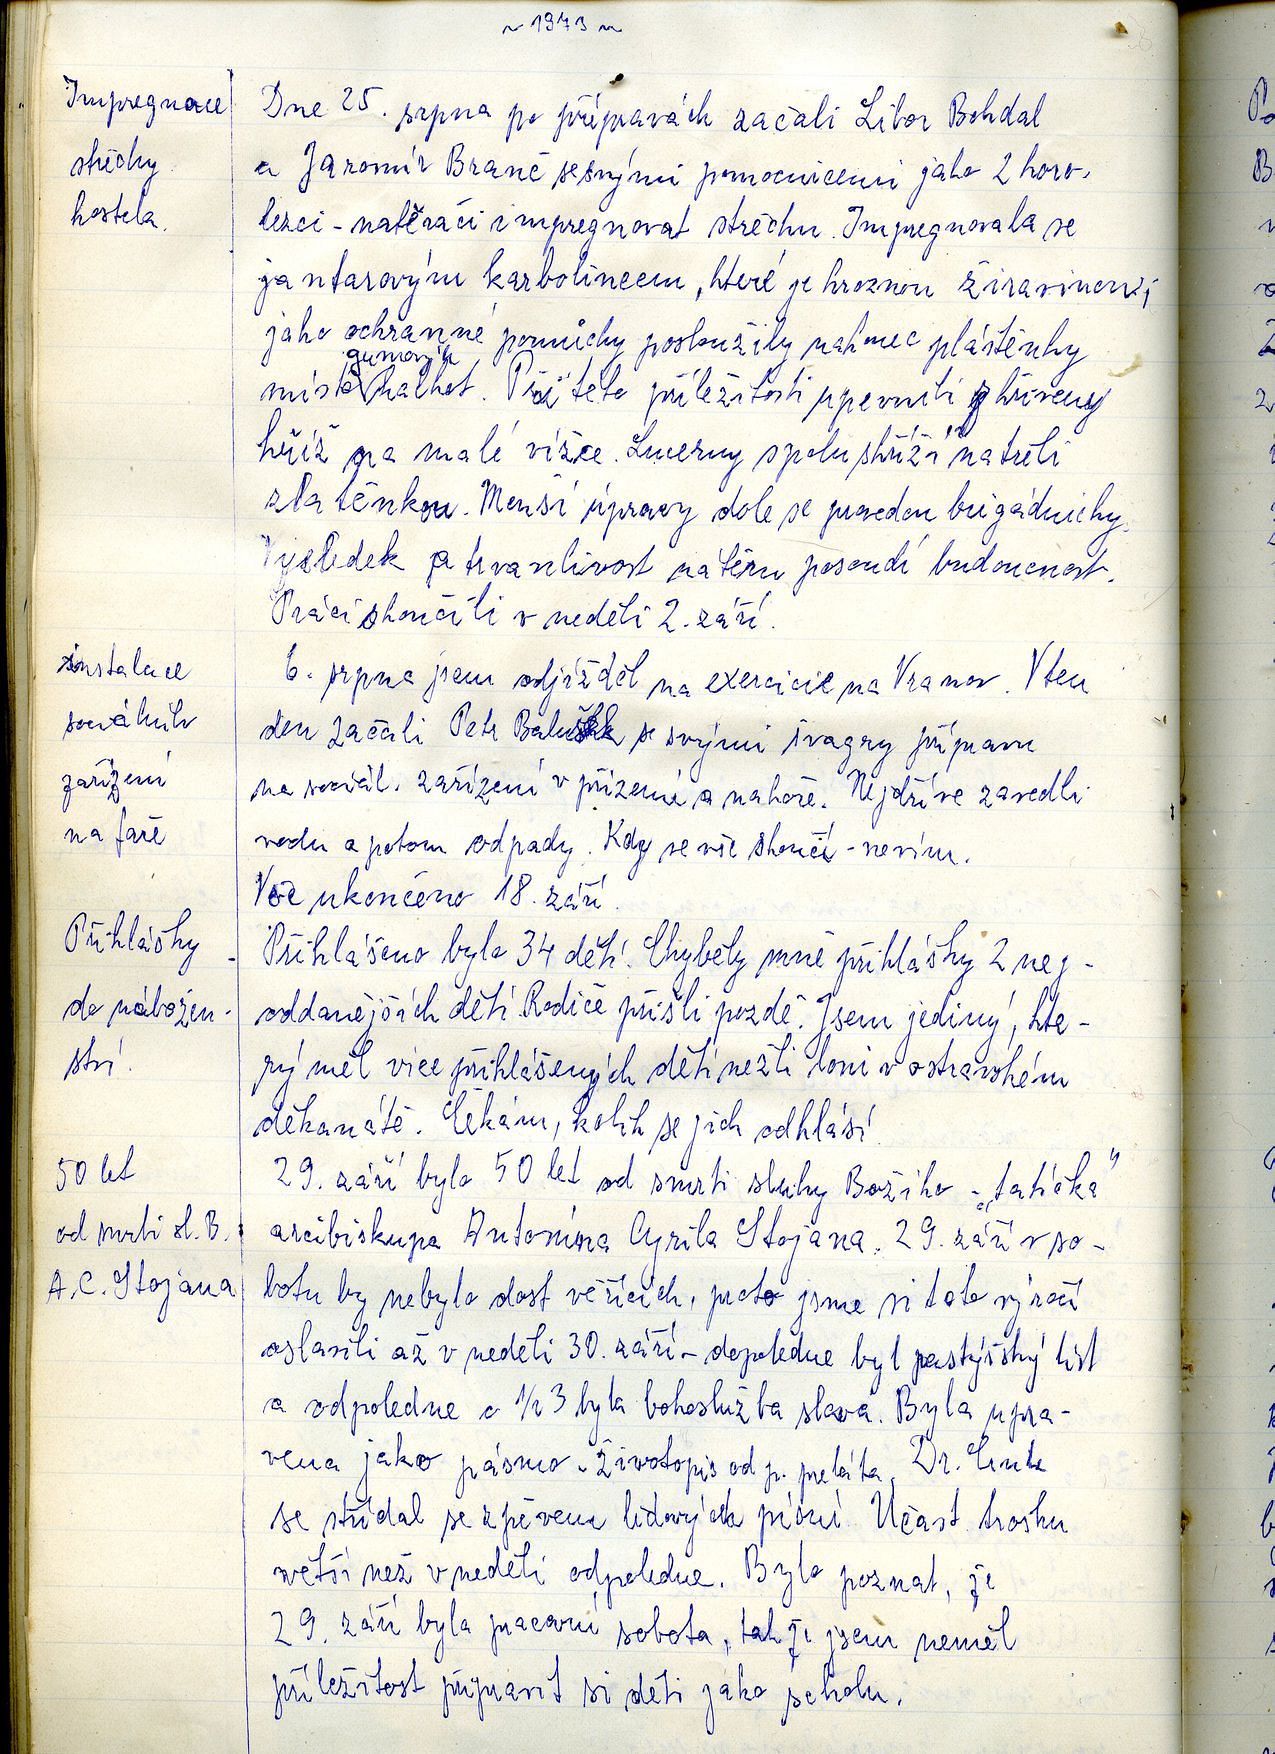 ~ 1973 ~
Impregnace
střechy
kostela.
Dne 25. srpna po přípravách začali Libor Bohdal
a Jaromír Branč se svými pomocnicemi jako 2 horo-
lezci - natěrači impregnovat střechu. Impregnovala se
jantarovým karbolineem, které je hroznou žíravinou;
jako ochranné pomůcky posloužily nakonec pláštěnky
gumových
místo kalhot. Při této příležitosti upevnili zkřivený
kříž na malé vížce. Lucerny spolu s kříži natřeli
zlatěnkou. Menší úpravy dole se provedou brigádnicky.
Výsledek a trvanlivost nátěru posoudí budoucnost.
Práci skončili v neděli 2. září.
instalace
sociálních
zařízení
na faře
6. srpna jsem odjížděl na exercicie na Vranov. V ten
den začali Petr se svými švagry přípravu
na sociál. zařízení v přízemí a nahoře. Nejdříve zavedli
vodu a potom odpady. Kdy se vše skončí - nevím.
Vše ukončeno 18. září.
Přihlášky
do nábožen-
ství.
Přihlášeno bylo 34 dětí. Chyběly mně přihlášky 2 nej-
oddanějších dětí. Rodiče přišli pozdě. Jsem jediný, kte-
rý měl více přihlášených dětí nežli loni v ostravském
děkanátě. Čekám, kolik se jich odhlásí.
50 let
od smrti sl. B.
A. C. Stojana
29. září bylo 50 let od smrti sluhy Božího - „tatíčka"
arcibiskupa Antonína Cyrila Stojana. 29. září v so-
botu by nebylo dost věřících, proto jsme si toto výročí
oslavili až v neděli 30. září - dopoledne byl pastýřský list
a odpoledne o 1/2 3 byla bohoslužba slova. Byla upra-
vena jako pásmo - životopis od p. preláta Dr.
se střídal se zpěvem lidových písní. Účast trochu
větší než v neděli odpoledne. Bylo poznat, že
29. září byla pracovní sobota, takže jsem neměl
příležitost připravit si děti jako scholu.